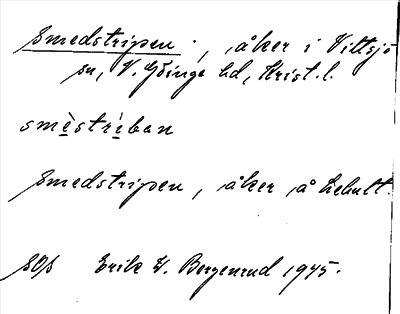 Smedstripen ., åker i Vittsjö
sn, V. Göinge hd, Krist. l.
smèstrìban
Smedstripen, åker å Lehult.
SOS Erik W. Bergenrud 1945.